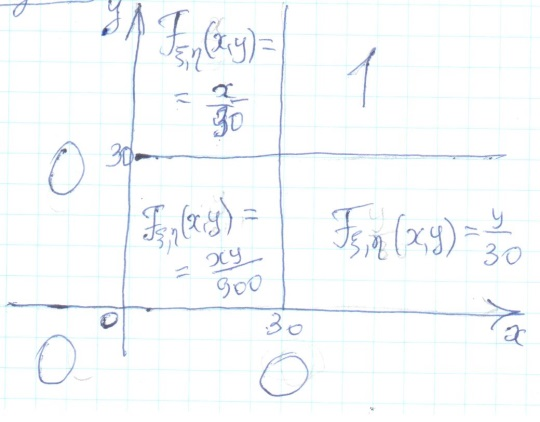 y
F_{ξ,η}(x,y) =
= x/30
1
0
30
F_{ξ,η}(x,y) =
= xy/900
F_{ξ,η}(x,y) = y/30
0
30
x
0
0